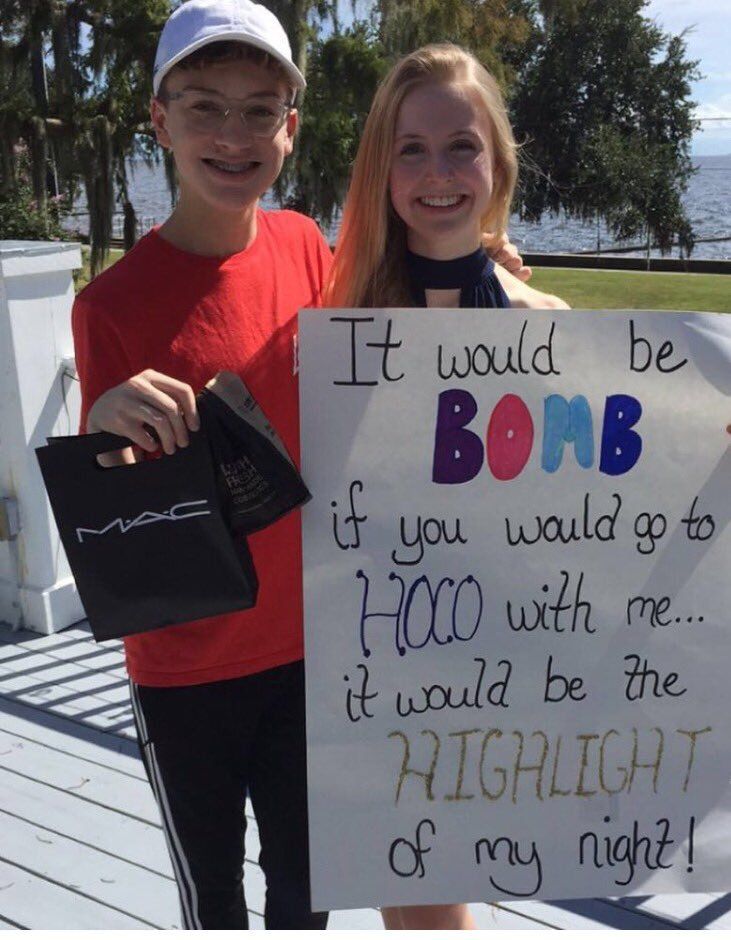 It would be
BOMB
if you would go to
HOCO with me...
it would be the
HIGHLIGHT
of my night!
M·A·C
LUSH
FRESH
HANDMADE
COSMETICS